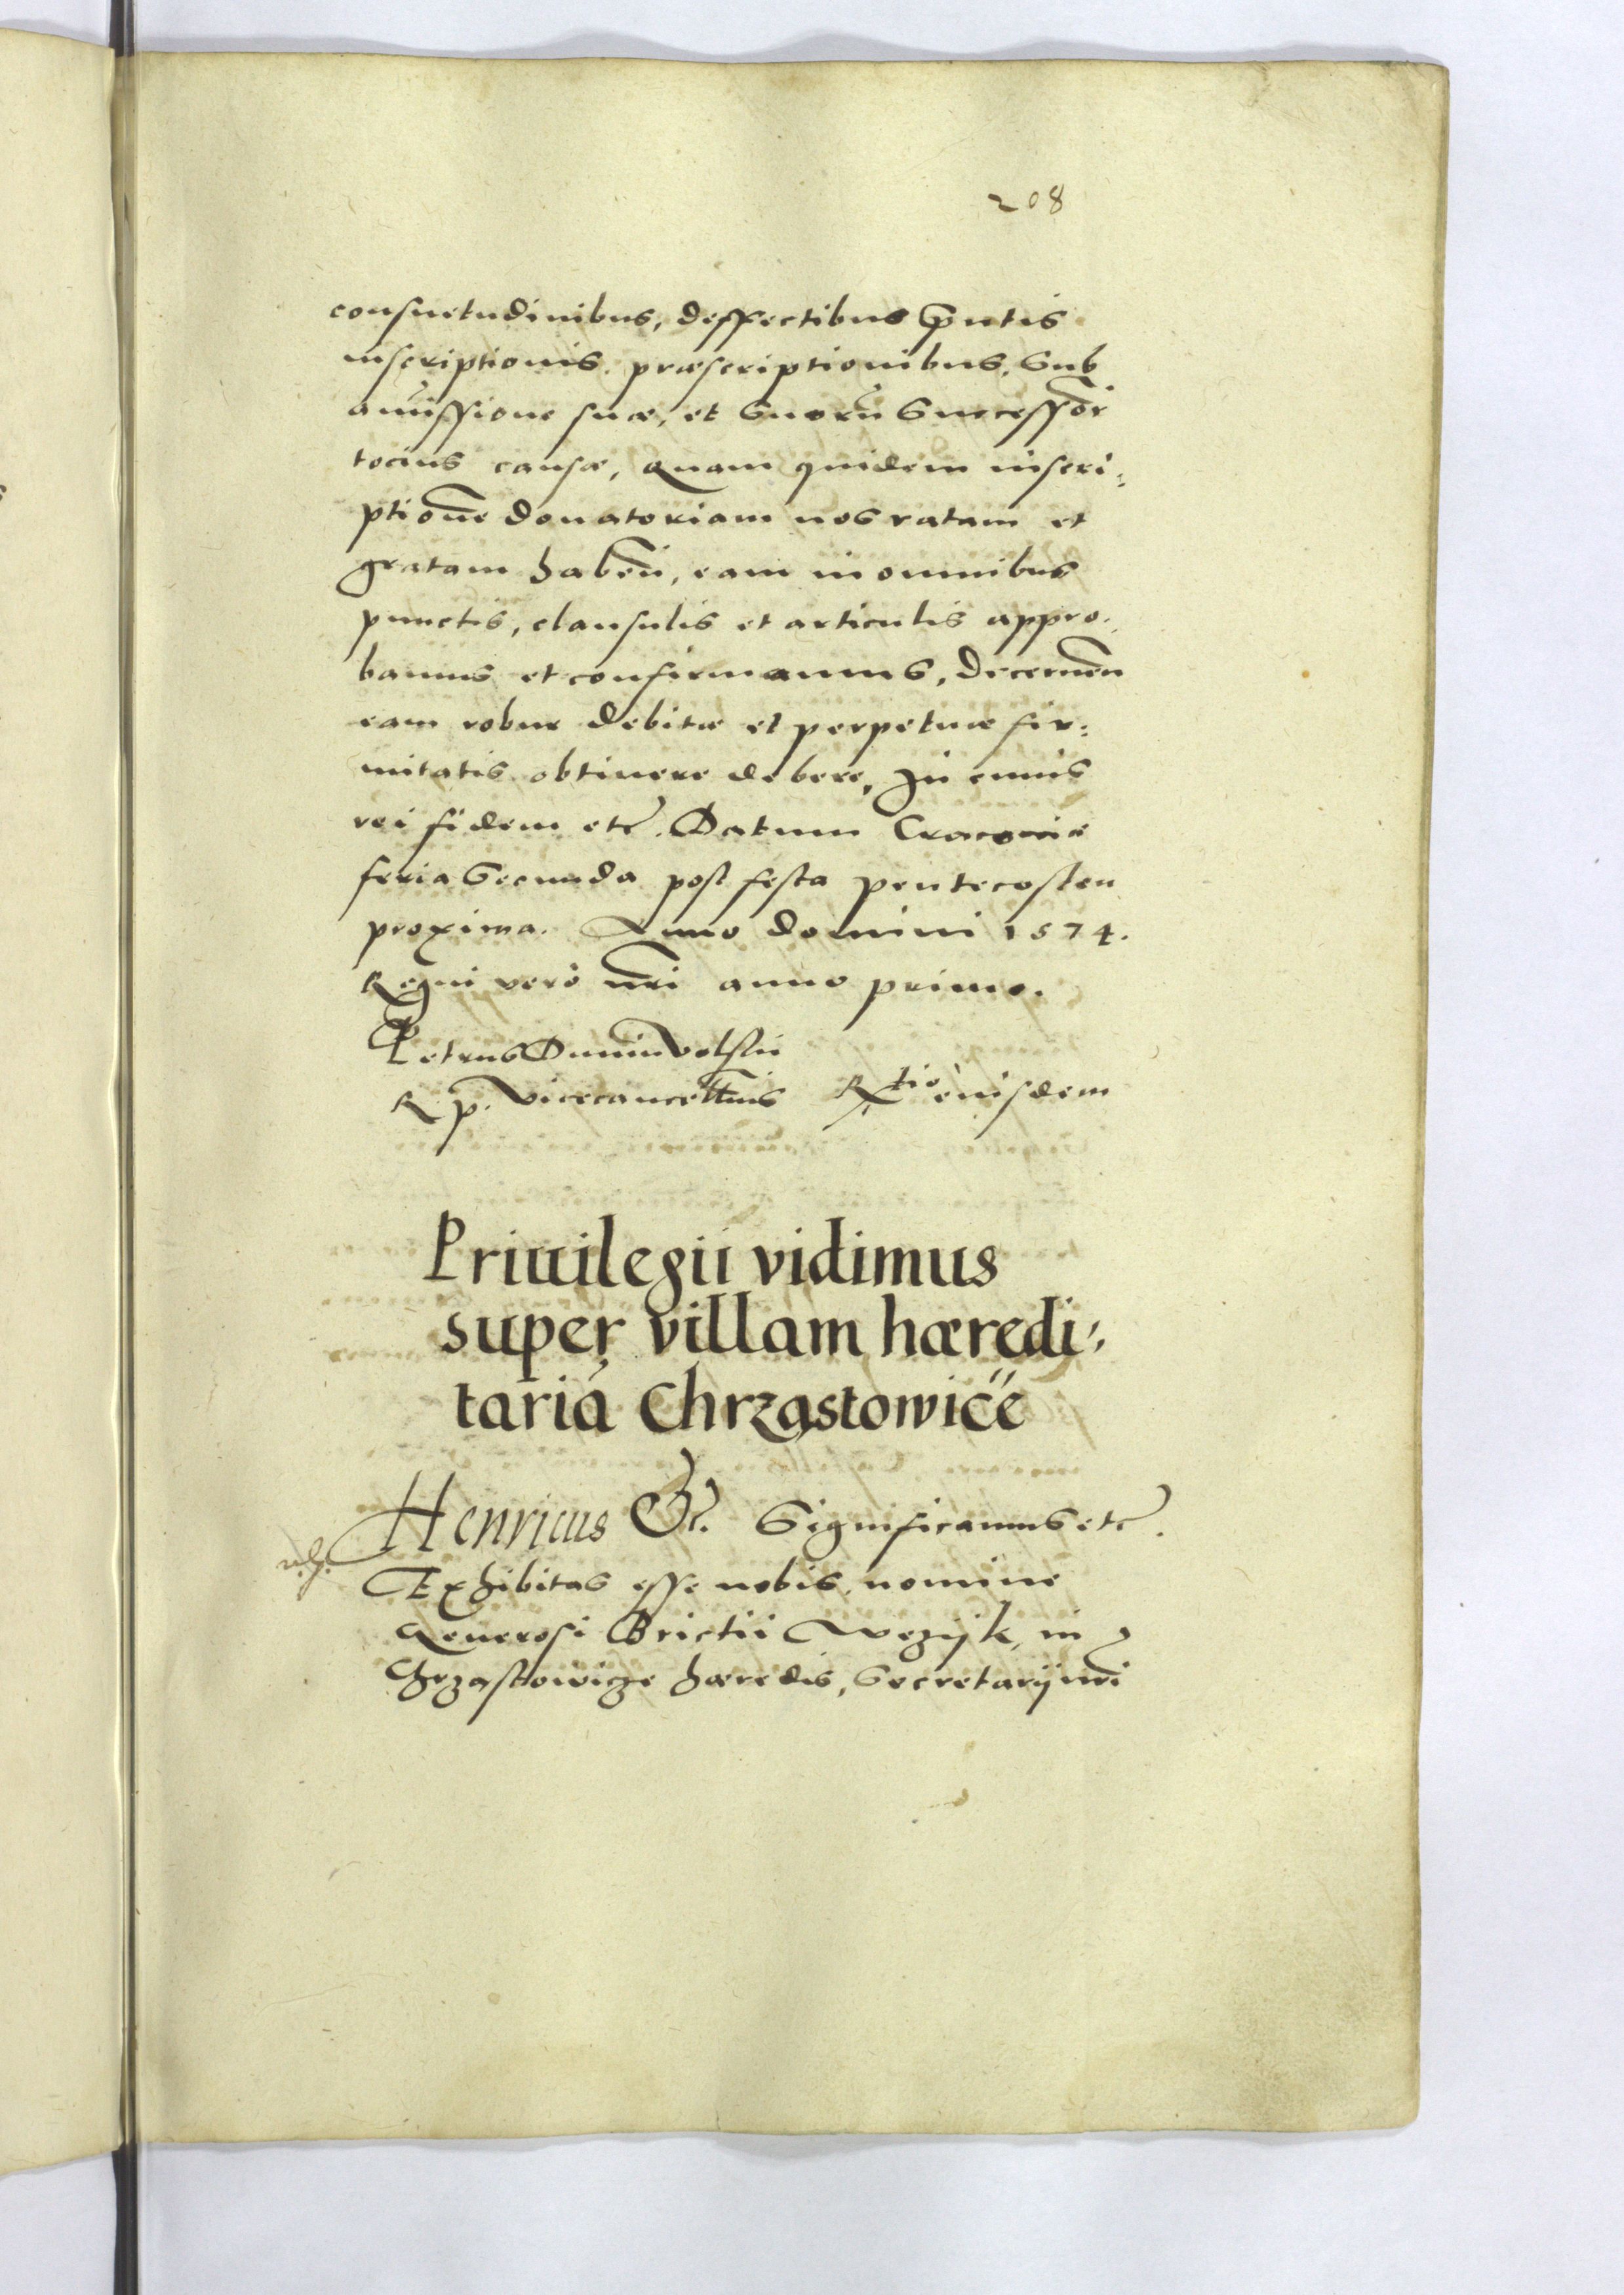 208
consuetudinibus, deffectibus pñtis
inscriptionis, præscriptionibus, sub
amissione suæ, et suorũ successor̃
tocius causæ, Quam quidem inscri:
ptionẽ donatoriam nos ratam et
gratam habeñ, eam in omnibus
punctis, clausulis et articulis appro:
bamus et confirmamus, decerneñ
eam robur debitæ et perpetuæ fir:
mitatis obtinere debere, In cuius
rei fidem etc̃. Datum Cracoviæ
feria secunda post festa pentecosten
proxima. Anno domini 1574.
Regni verò nr̃i anno primo.
Petrus Dunin Volski
R. p. Vicecancell̃rius Rtio eiusdem
Priuilegii vidimus
super villam hæredi:
tariã Chrząstowice
Henricus &c. Significamus etc̃.
Exhibitas esse nobis, nomine
Generosi Brictii Wężyk, in
Chrząstowicze hæredis, Secretarij nr̃i